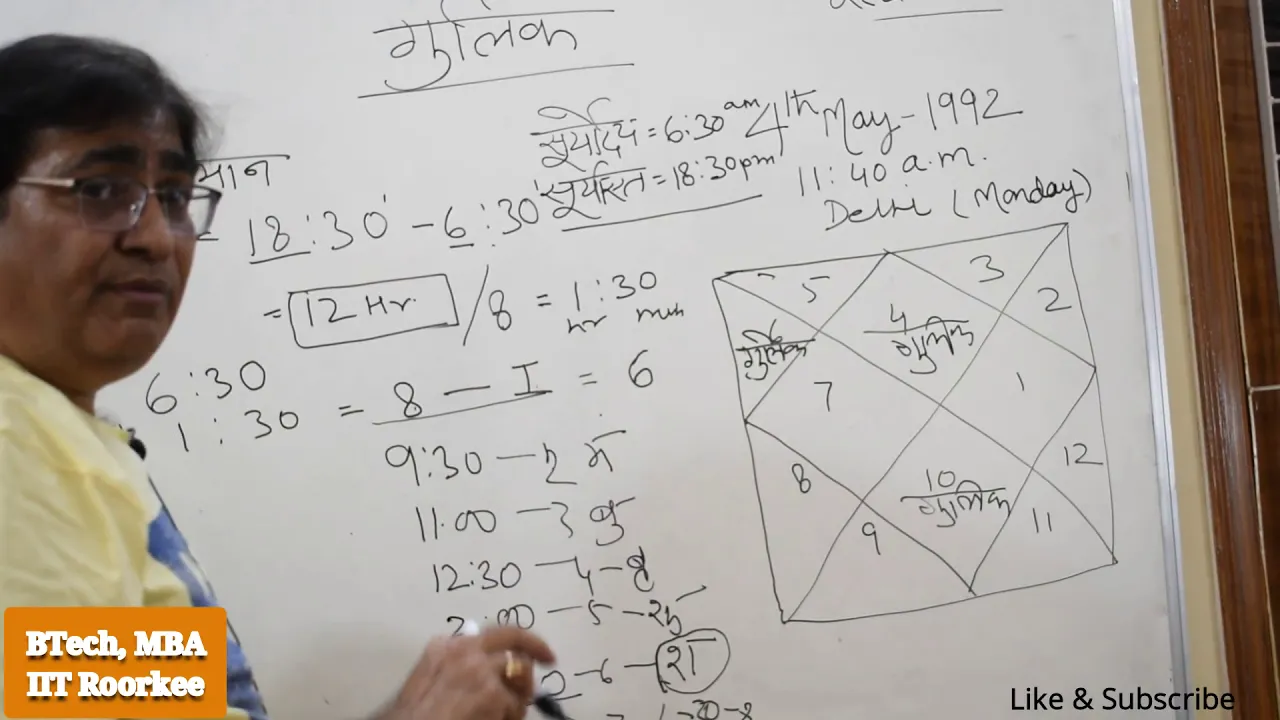 गुलिक
सूर्योदय = 6:30 am
सूर्यास्त = 18:30 pm
4th May - 1992
11:40 a.m.
Delhi (Monday)
मान
18:30 - 6:30
= 12 Hr. / 8 = 1:30
hr min
6:30
1:30 = 8 — I = 6
9:30 — 2 मं
11:00 — 3 बु
12:30 — 4 -
2:00 — 5 — शु
6 — श
5
3
2
4
गुलिक
6
गुलिक
7
1
8
10
गुलिक
12
9
11
BTech, MBA
IIT Roorkee
Like & Subscribe